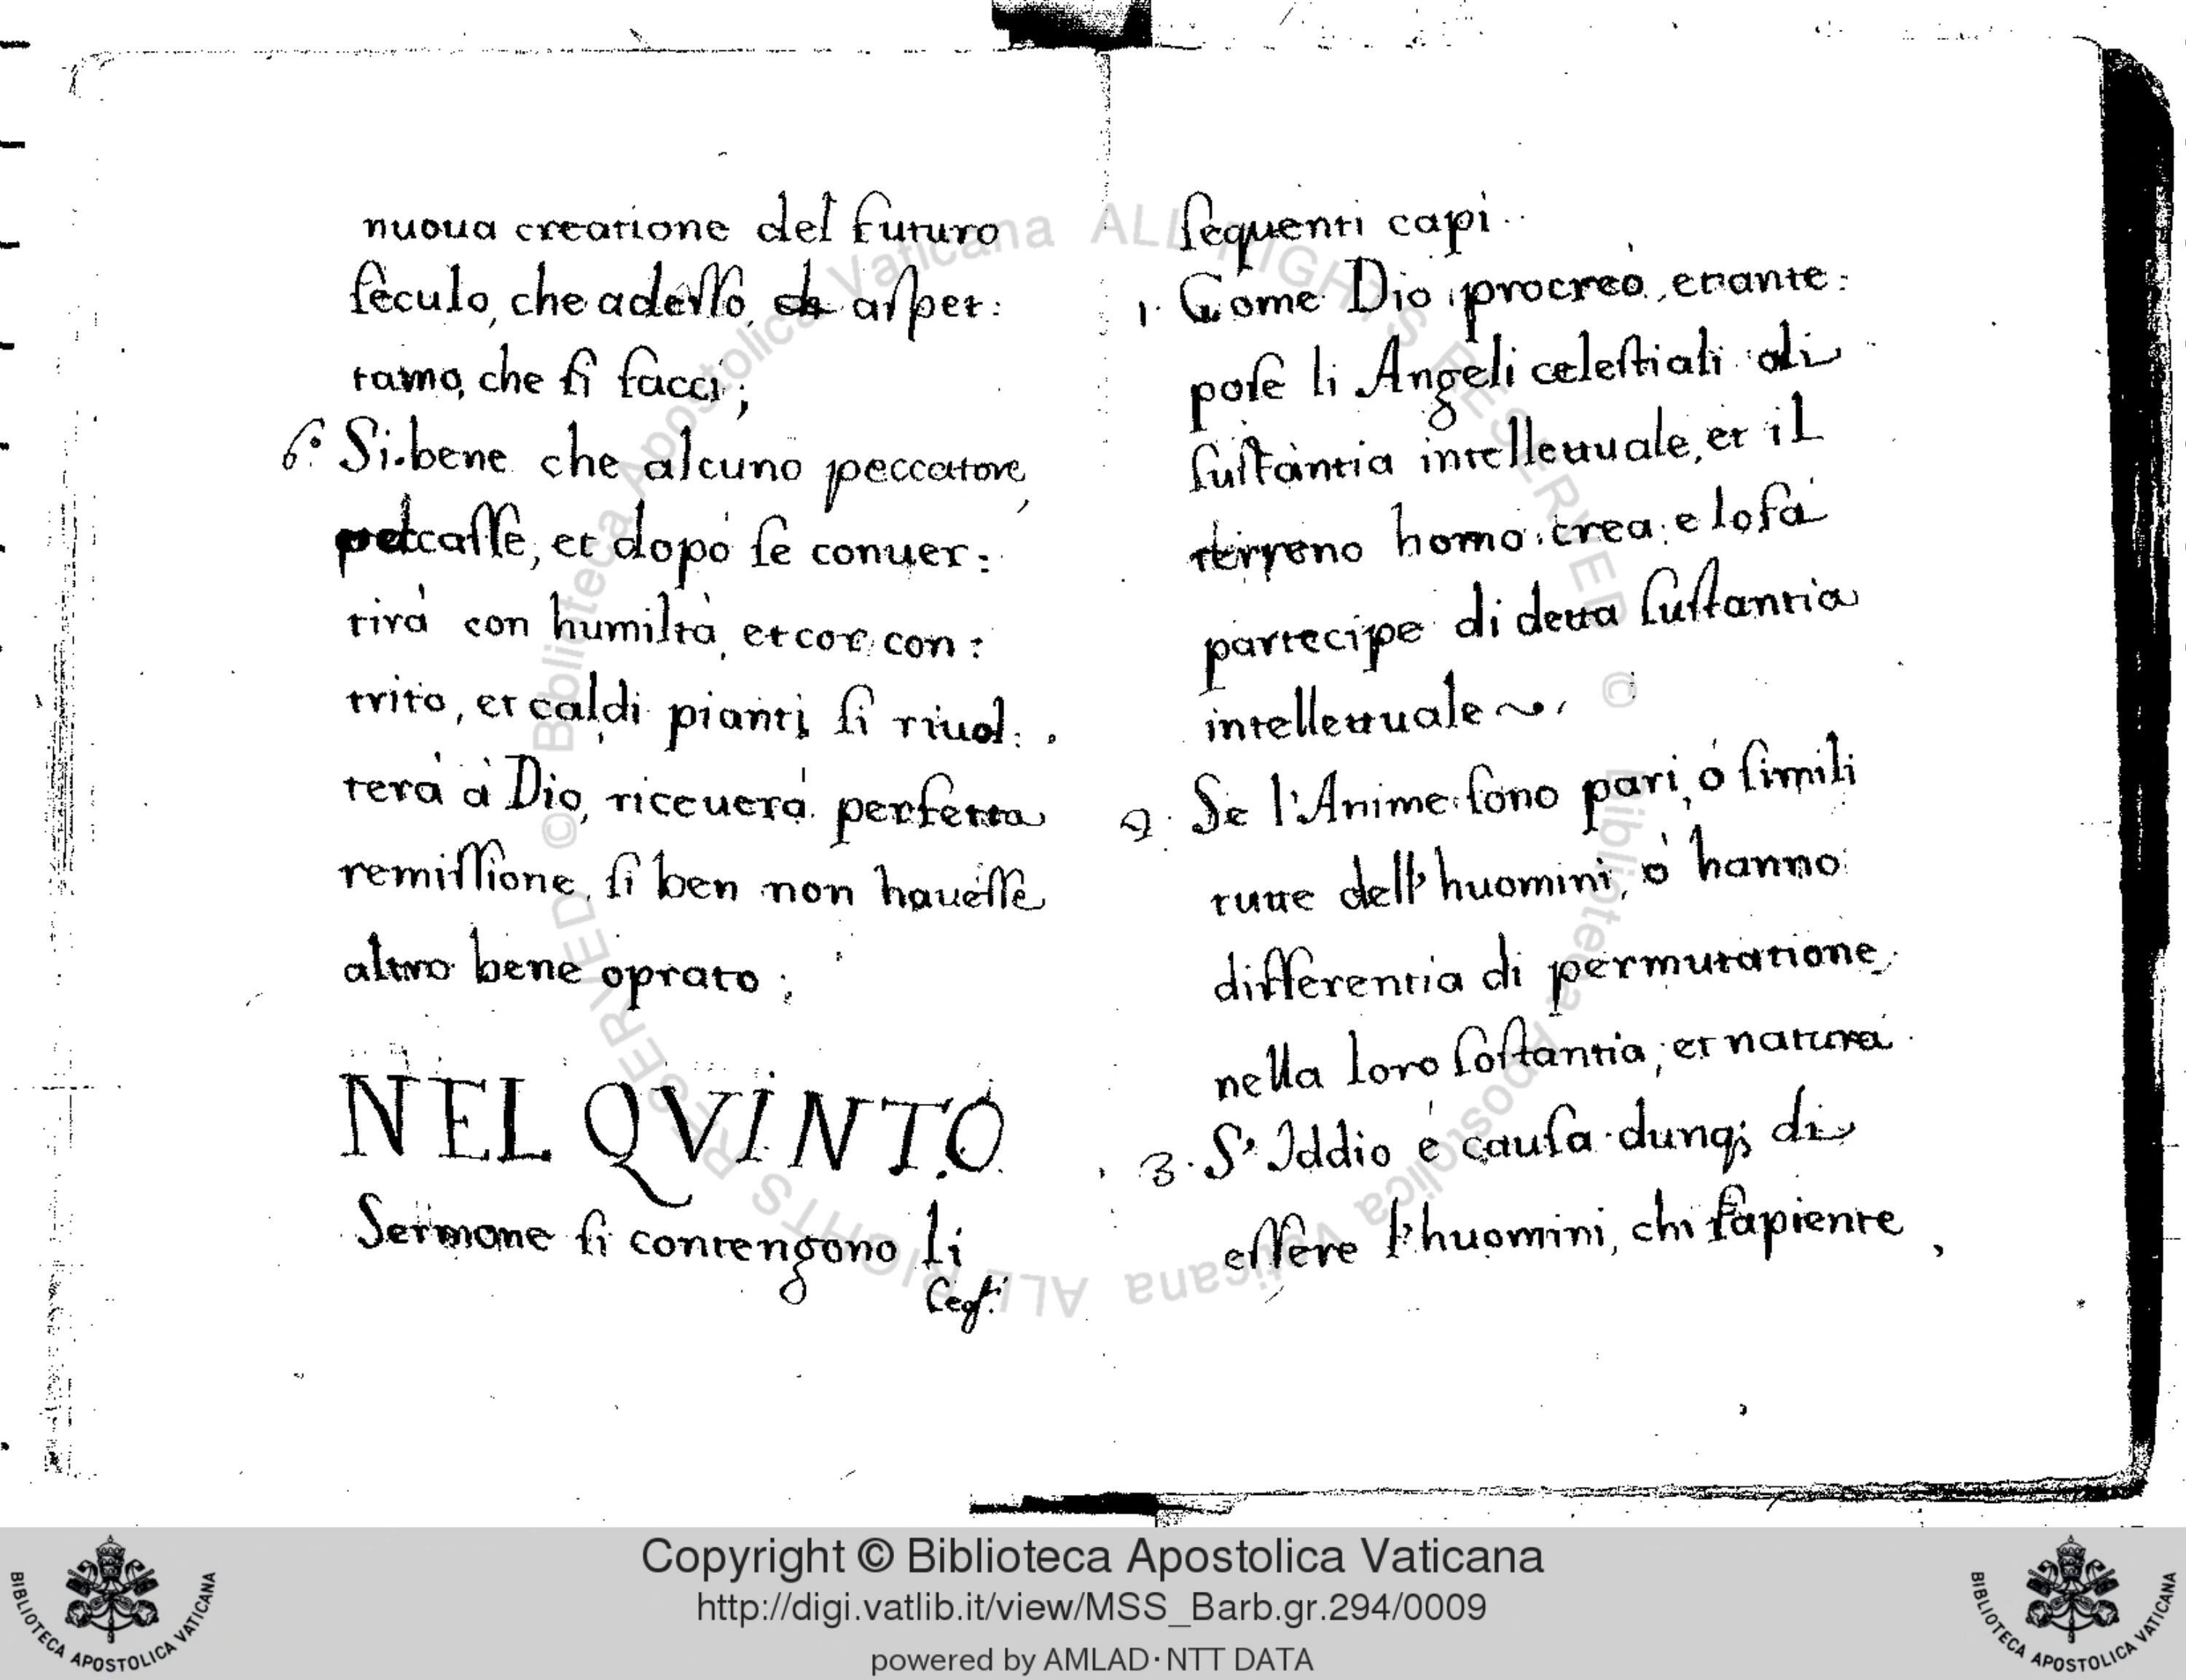 nuoua creatione del futuro
seculo, che adesso, ch aspet:
tamo, che si facci;
6. Si bene che alcuno peccatore,
petcasse, et dopò se conuer:
tirà con humiltà, et cor con:
trito, et caldi pianti, si riuol:
terà à Dio, riceuerà perfetta
remissione, si ben non hauesse
altro bene oprato;
NEL QVINTO
Sermone si contengono li
seqti
sequenti capi
1. Come Dio procreò, et ante:
pose li Angeli celestiali di
sustantia intellettuale, et il
terreno homo crea e lo fà
partecipe di detta sustantia
intellettuale
2. Se l'Anime sono pari, ò simili
tutte dell' huomini, ò hanno
differentia di permutatione
nella loro sostantia, et natura
3. S' Iddio è causa dunq; di
essere l' huomini, chi sapiente,
Copyright © Biblioteca Apostolica Vaticana
http://digi.vatlib.it/view/MSS_Barb.gr.294/0009
powered by AMLAD·NTT DATA
BIBLIOTECA APOSTOLICA VATICANA
BIBLIOTECA APOSTOLICA VATICANA